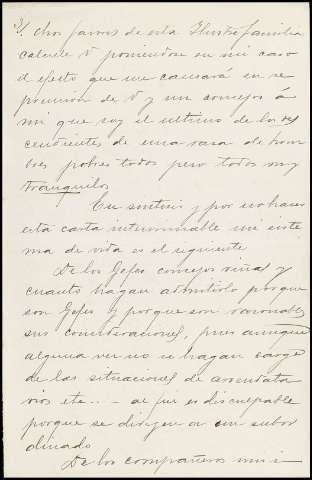 3/. chos favores de esta Ilustre familia
calcule V poniendose en mi caso
el efecto que me causará en se
presencia de V y un consejo á
mi que soy el ultimo de los des
cendientes de una rasa de hom
bres pobres todos pero todos muy
tranquilos
En sintesis y por no hacer
esta carta interminable mi siste
ma de vida es el siguiente
De los Gefes consejos riñas y
cuanto hagan admitirlo porque
son Gefes y porque son razonables
sus consideraciones, pues aunque
alguna vez no se hagan cargo
de las situaciones de arrendata
rios etc.. - al fin es disculpable
porque se dirigen a un subor
dinado
De los compañeros